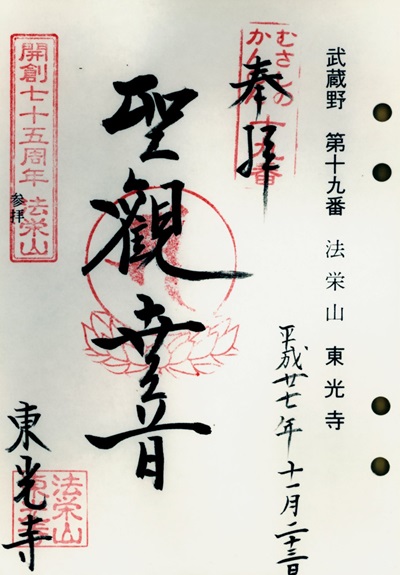 武蔵野 第十九番 法栄山 東光寺
平成廿七年 十一月二十三日
むさしの
かんのん
十九番
奉拝
聖觀世音
開創七十五周年 法栄山
参拝
東光寺
法栄山
東光寺